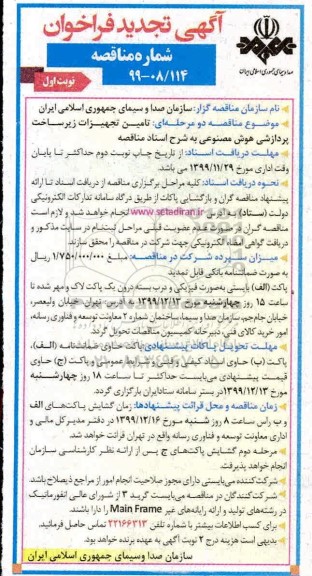 آگهی تجدید فراخوان
شماره مناقصه
۹۹-۰۸/۱۱۴
نوبت اول
صدا و سیمای جمهوری اسلامی ایران
نام سازمان مناقصه گزار: سازمان صدا و سیمای جمهوری اسلامی ایران
موضوع مناقصه دو مرحله‌ای: تامین تجهیزات زیرساخت
پردازشی هوش مصنوعی به شرح اسناد مناقصه
مهلت دریافت اسناد: از تاریخ چاپ نوبت دوم حداکثر تا پایان
وقت اداری مورخ ۱۳۹۹/۱۱/۲۹ می باشد.
نحوه دریافت اسناد: کلیه مراحل برگزاری مناقصه از دریافت اسناد تا ارائه
پیشنهاد مناقصه گران و بازگشایی پاکات از طریق درگاه سامانه تدارکات الکترونیکی
دولت (ستاد) به آدرس www.setadiran.ir انجام خواهد شد و لازم است
مناقصه گران در صورت عدم عضویت قبلی مراحل ثبت‌نام در سایت مذکور و
دریافت گواهی امضاء الکترونیکی جهت شرکت در مناقصه را محقق سازند.
میزان سپرده شرکت در مناقصه: مبلغ ۱/۷۵۰/۰۰۰/۰۰۰ ریال
به صورت ضمانتنامه بانکی قابل تمدید
پاکت (الف) بایستی به‌صورت فیزیکی و درب بسته درون یک پاکت لاک و مهر شده تا
ساعت ۱۵ روز چهارشنبه مورخ ۱۳۹۹/۱۲/۱۳ به آدرس: تهران، خیابان ولیعصر،
خیابان جام‌جم، سازمان صدا و سیما، ساختمان شماره ۲ معاونت توسعه و فناوری رسانه،
امور خرید کالای فنی، دبیرخانه کمیسیون مناقصات تحویل گردد.
مهلت تحویل پاکات پیشنهادی: پاکت حاوی ضمانتنامه (الف)،
پاکت (ب) حاوی اسناد کیفی و فنی و شرایط عمومی و پاکت (ج) حاوی
قیمت پیشنهادی می‌بایست حداکثر تا ساعت ۱۸ روز چهارشنبه
مورخ ۱۳۹۹/۱۲/۱۳ در بستر سامانه ستاد ایران بارگزاری گردد.
زمان مناقصه و محل قرائت پیشنهادها: زمان گشایش پاکت‌های الف
و ب راس ساعت ۸ روز شنبه مورخ ۱۳۹۹/۱۲/۱۶ در دفتر مدیر کل مالی و
اداری معاونت توسعه و فناوری رسانه واقع در تهران قرائت خواهد شد.
مرحله دوم گشایش پاکت‌های ج پس از ارائه نظر کارشناسی سازمان
انجام خواهد پذیرفت.
شرکت‌کننده می‌بایستی دارای مجوز صلاحیت انجام امور از مراجع ذیصلاح باشد
شرکت‌کنندگان در مناقصه می‌بایست گرید ۳ از شورای عالی انفورماتیک
در رشته‌های تولید و ارائه رایانه‌های غیر Main Frame را دارا باشند.
برای کسب اطلاعات بیشتر با شماره تلفن ۲۲۱۶۶۳۱۳ تماس حاصل فرمائید.
بدیهی است هزینه درج ۲ نوبت آگهی به عهده برنده خواهد بود.
سازمان صدا و سیمای جمهوری اسلامی ایران